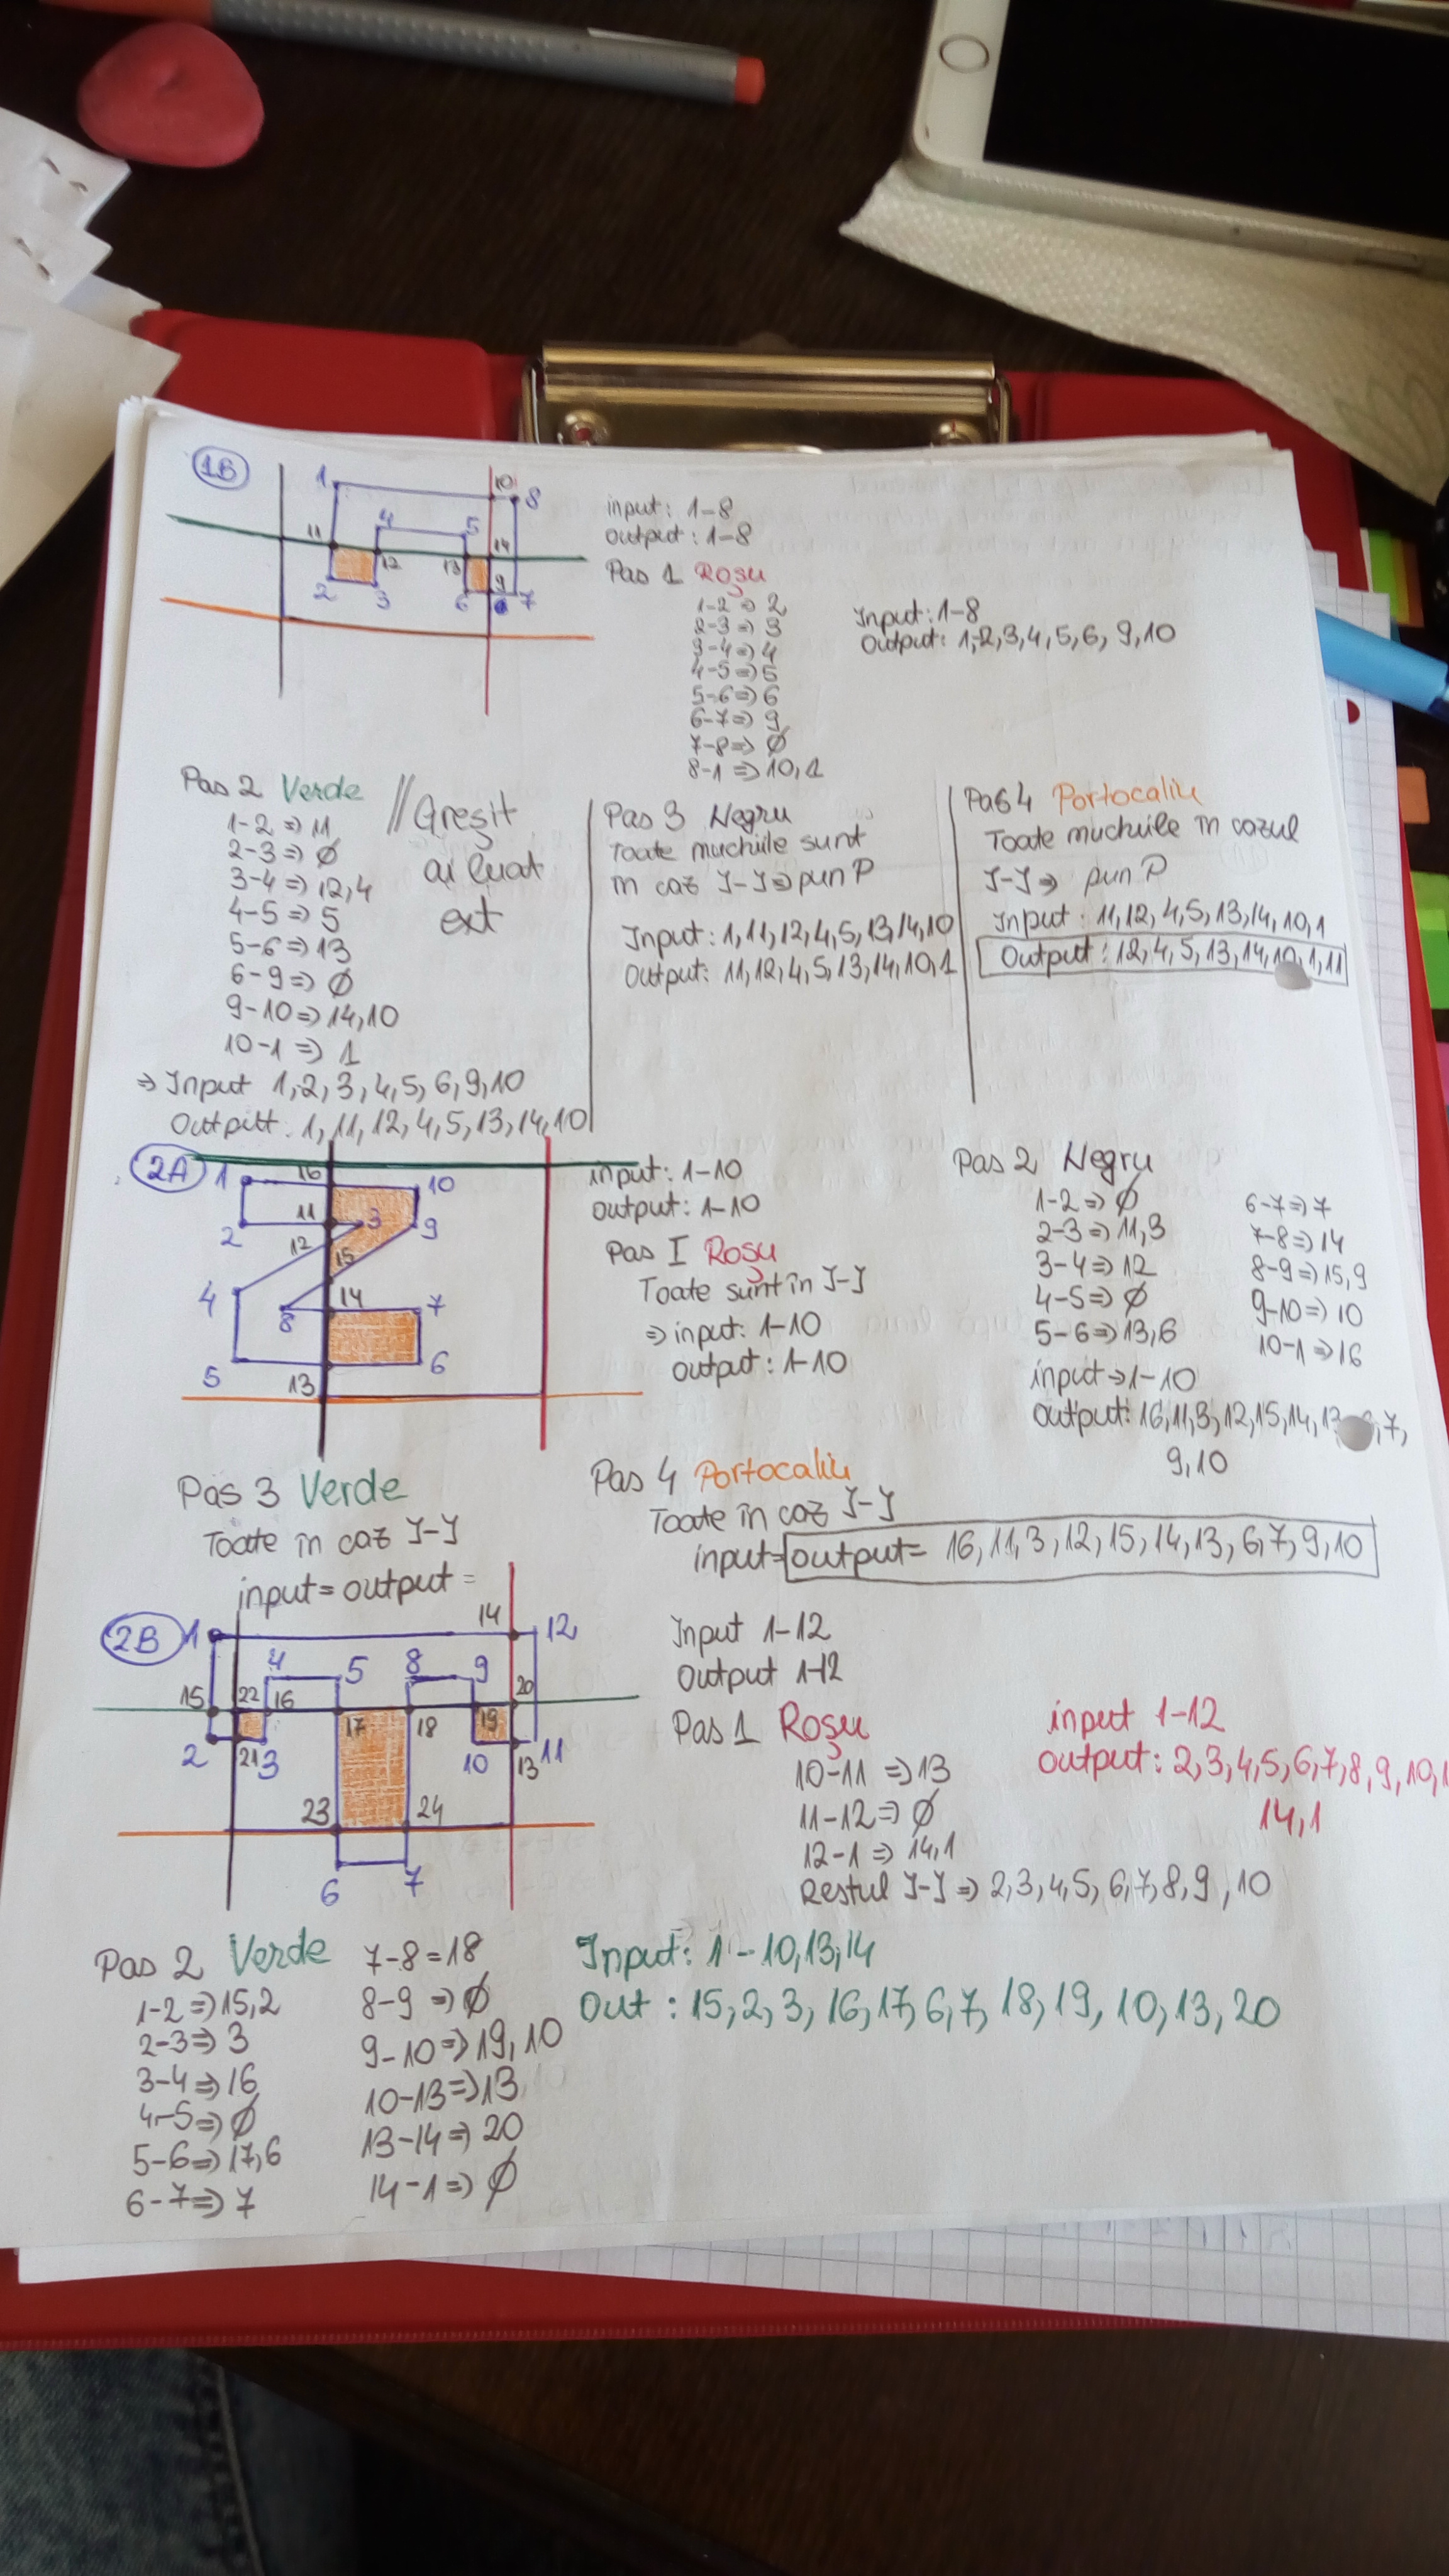 1B
1
10
8
4
5
11
12
13
14
2
3
6
9
7
input: 1-8
output: 1-8
Pas 1 Roșu
1-2 => 2
2-3 => 3
3-4 => 4
4-5 => 5
5-6 => 6
6-7 => 9
7-8 => Ø
8-1 => 10,1
Input: 1-8
Output: 1,2,3,4,5,6,9,10
Pas 2 Verde
1-2 => 11
2-3 => Ø
3-4 => 12,4
4-5 => 5
5-6 => 13
6-9 => Ø
9-10 => 14,10
10-1 => 1
=> Input 1,2,3,4,5,6,9,10
Output: 1,11,12,4,5,13,14,10
// Greșit
ai luat
ext
Pas 3 Negru
Toate muchiile sunt
in caz I-I => pun P
Input: 1,11,12,4,5,13,14,10
Output: 11,12,4,5,13,14,10,1
Pas 4 Portocaliu
Toate muchiile în cazul
I-I => pun P
Input: 11,12,4,5,13,14,10,1
Output: 12,4,5,13,14,10,1,11
2A
1
16
10
11
3
2
12
9
15
4
14
7
8
5
6
13
input: 1-10
output: 1-10
Pas I Roșu
Toate sunt în I-I
=> input: 1-10
output: 1-10
Pas 2 Negru
1-2 => Ø
2-3 => 11,3
3-4 => 12
4-5 => Ø
5-6 => 13,6
6-7 => 7
7-8 => 14
8-9 => 15,9
9-10 => 10
10-1 => 16
input -> 1-10
output: 16,11,3,12,15,14,13,7,
9,10
Pas 3 Verde
Toate în caz I-I
input = output =
Pas 4 Portocaliu
Toate în caz I-I
input = output = 16,11,3,12,15,14,13,6,7,9,10
2B
1
14
12
4
5
8
9
15
22
16
17
18
19
20
2
21
3
10
13
11
23
24
6
7
Input 1-12
Output 1-12
Pas 1 Roșu
10-11 => 13
11-12 => Ø
12-1 => 14,1
Restul I-I => 2,3,4,5,6,7,8,9,10
input 1-12
output: 2,3,4,5,6,7,8,9,10,
14,1
Pas 2 Verde
1-2 => 15,2
2-3 => 3
3-4 => 16
4-5 => Ø
5-6 => 17,6
6-7 => 7
7-8 = 18
8-9 => Ø
9-10 => 19,10
10-13 => 13
13-14 => 20
14-1 => Ø
Input: 1-10,13,14
Out: 15,2,3,16,17,6,7,18,19,10,13,20